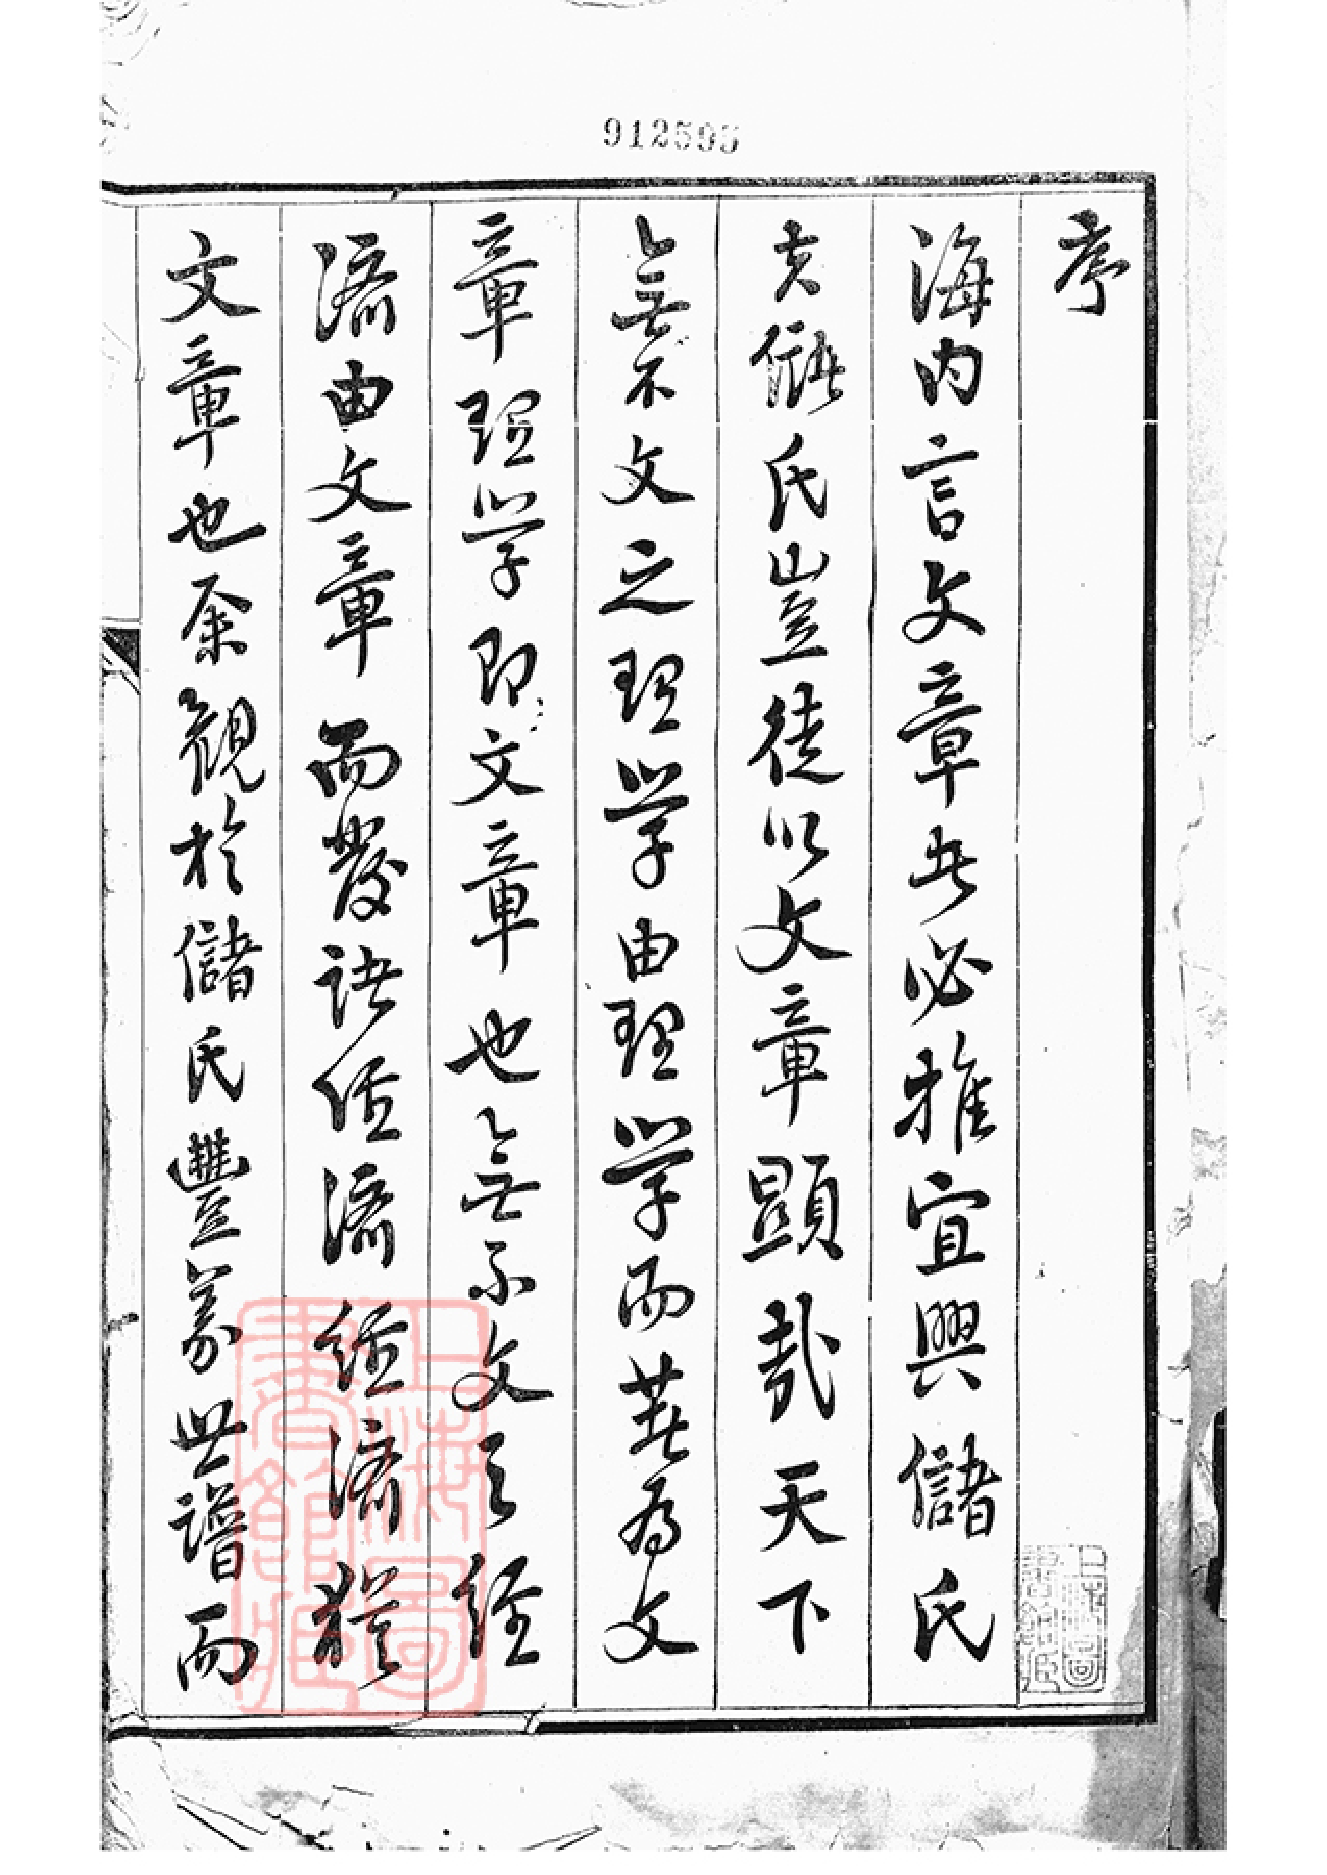 912595
序
海内言文章者必推宜興儲氏
夫儲氏豈徒以文章顯哉天下
無不文之理學由理學而著為文
章理學即文章也無不文之經
濟由文章而發諸經濟經濟猶
文章也余觀於儲氏豐義世譜而
上海圖書館藏
上海圖書館藏